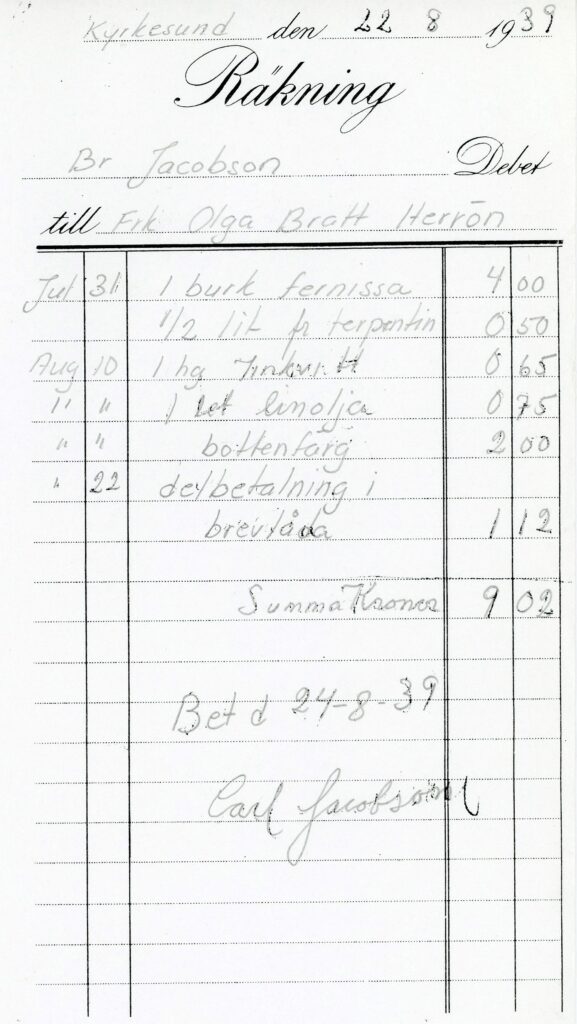 Kyrkesund den 22 8 1939
Räkning
Br Jacobson Debet
till Frk Olga Bratt Herrön
Jul 31 1 burk fernissa 4 00
1/2 lit fr terpentin 0 50
Aug 10 1 hg zinkvitt 0 65
" " 1 let linolja 0 75
" " bottenfärg 2 00
" 22 delbetalning i
brevlåda 1 12
Summa Kronor 9 02
Bet d 24-8-39
Carl Jacobson